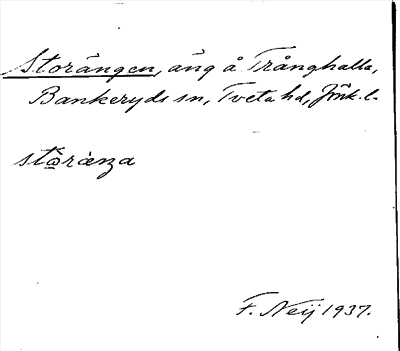 Storängen, äng å Trånghalla,
Bankeryds sn, Tveta hd, Jönk. l.
stòránza
F. Neij 1937.